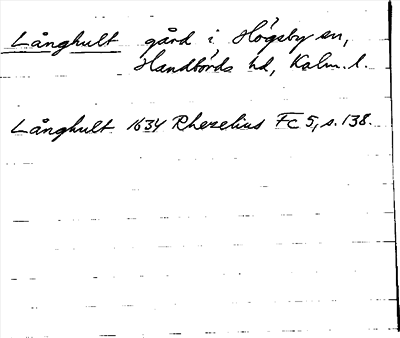 Långhult gård i Högsby sn,
Handbörds hd, Kalm. l.
Långhult 1634 Rhezelius Fc 5, s. 138.